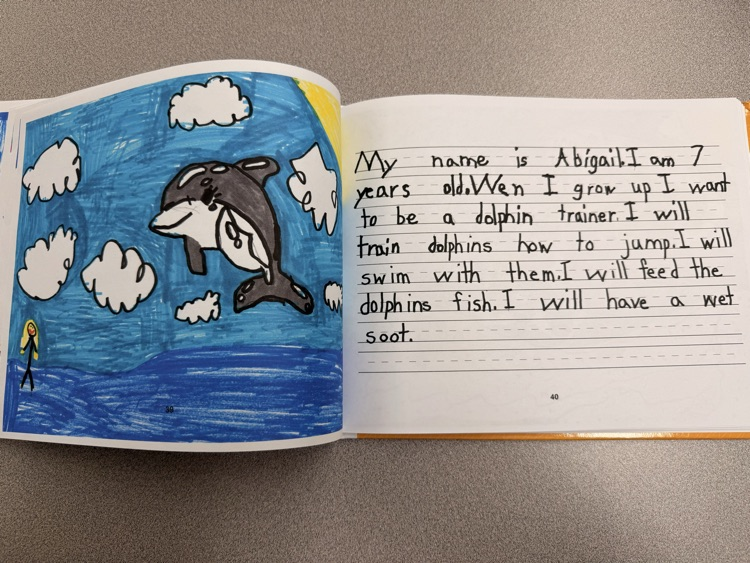 My name is Abigail. I am 7
years old. Wen I grow up I want
to be a dolphin trainer. I will
train dolphins how to jump. I will
swim with them. I will feed the
dolphins fish. I will have a wet
soot.
39
40